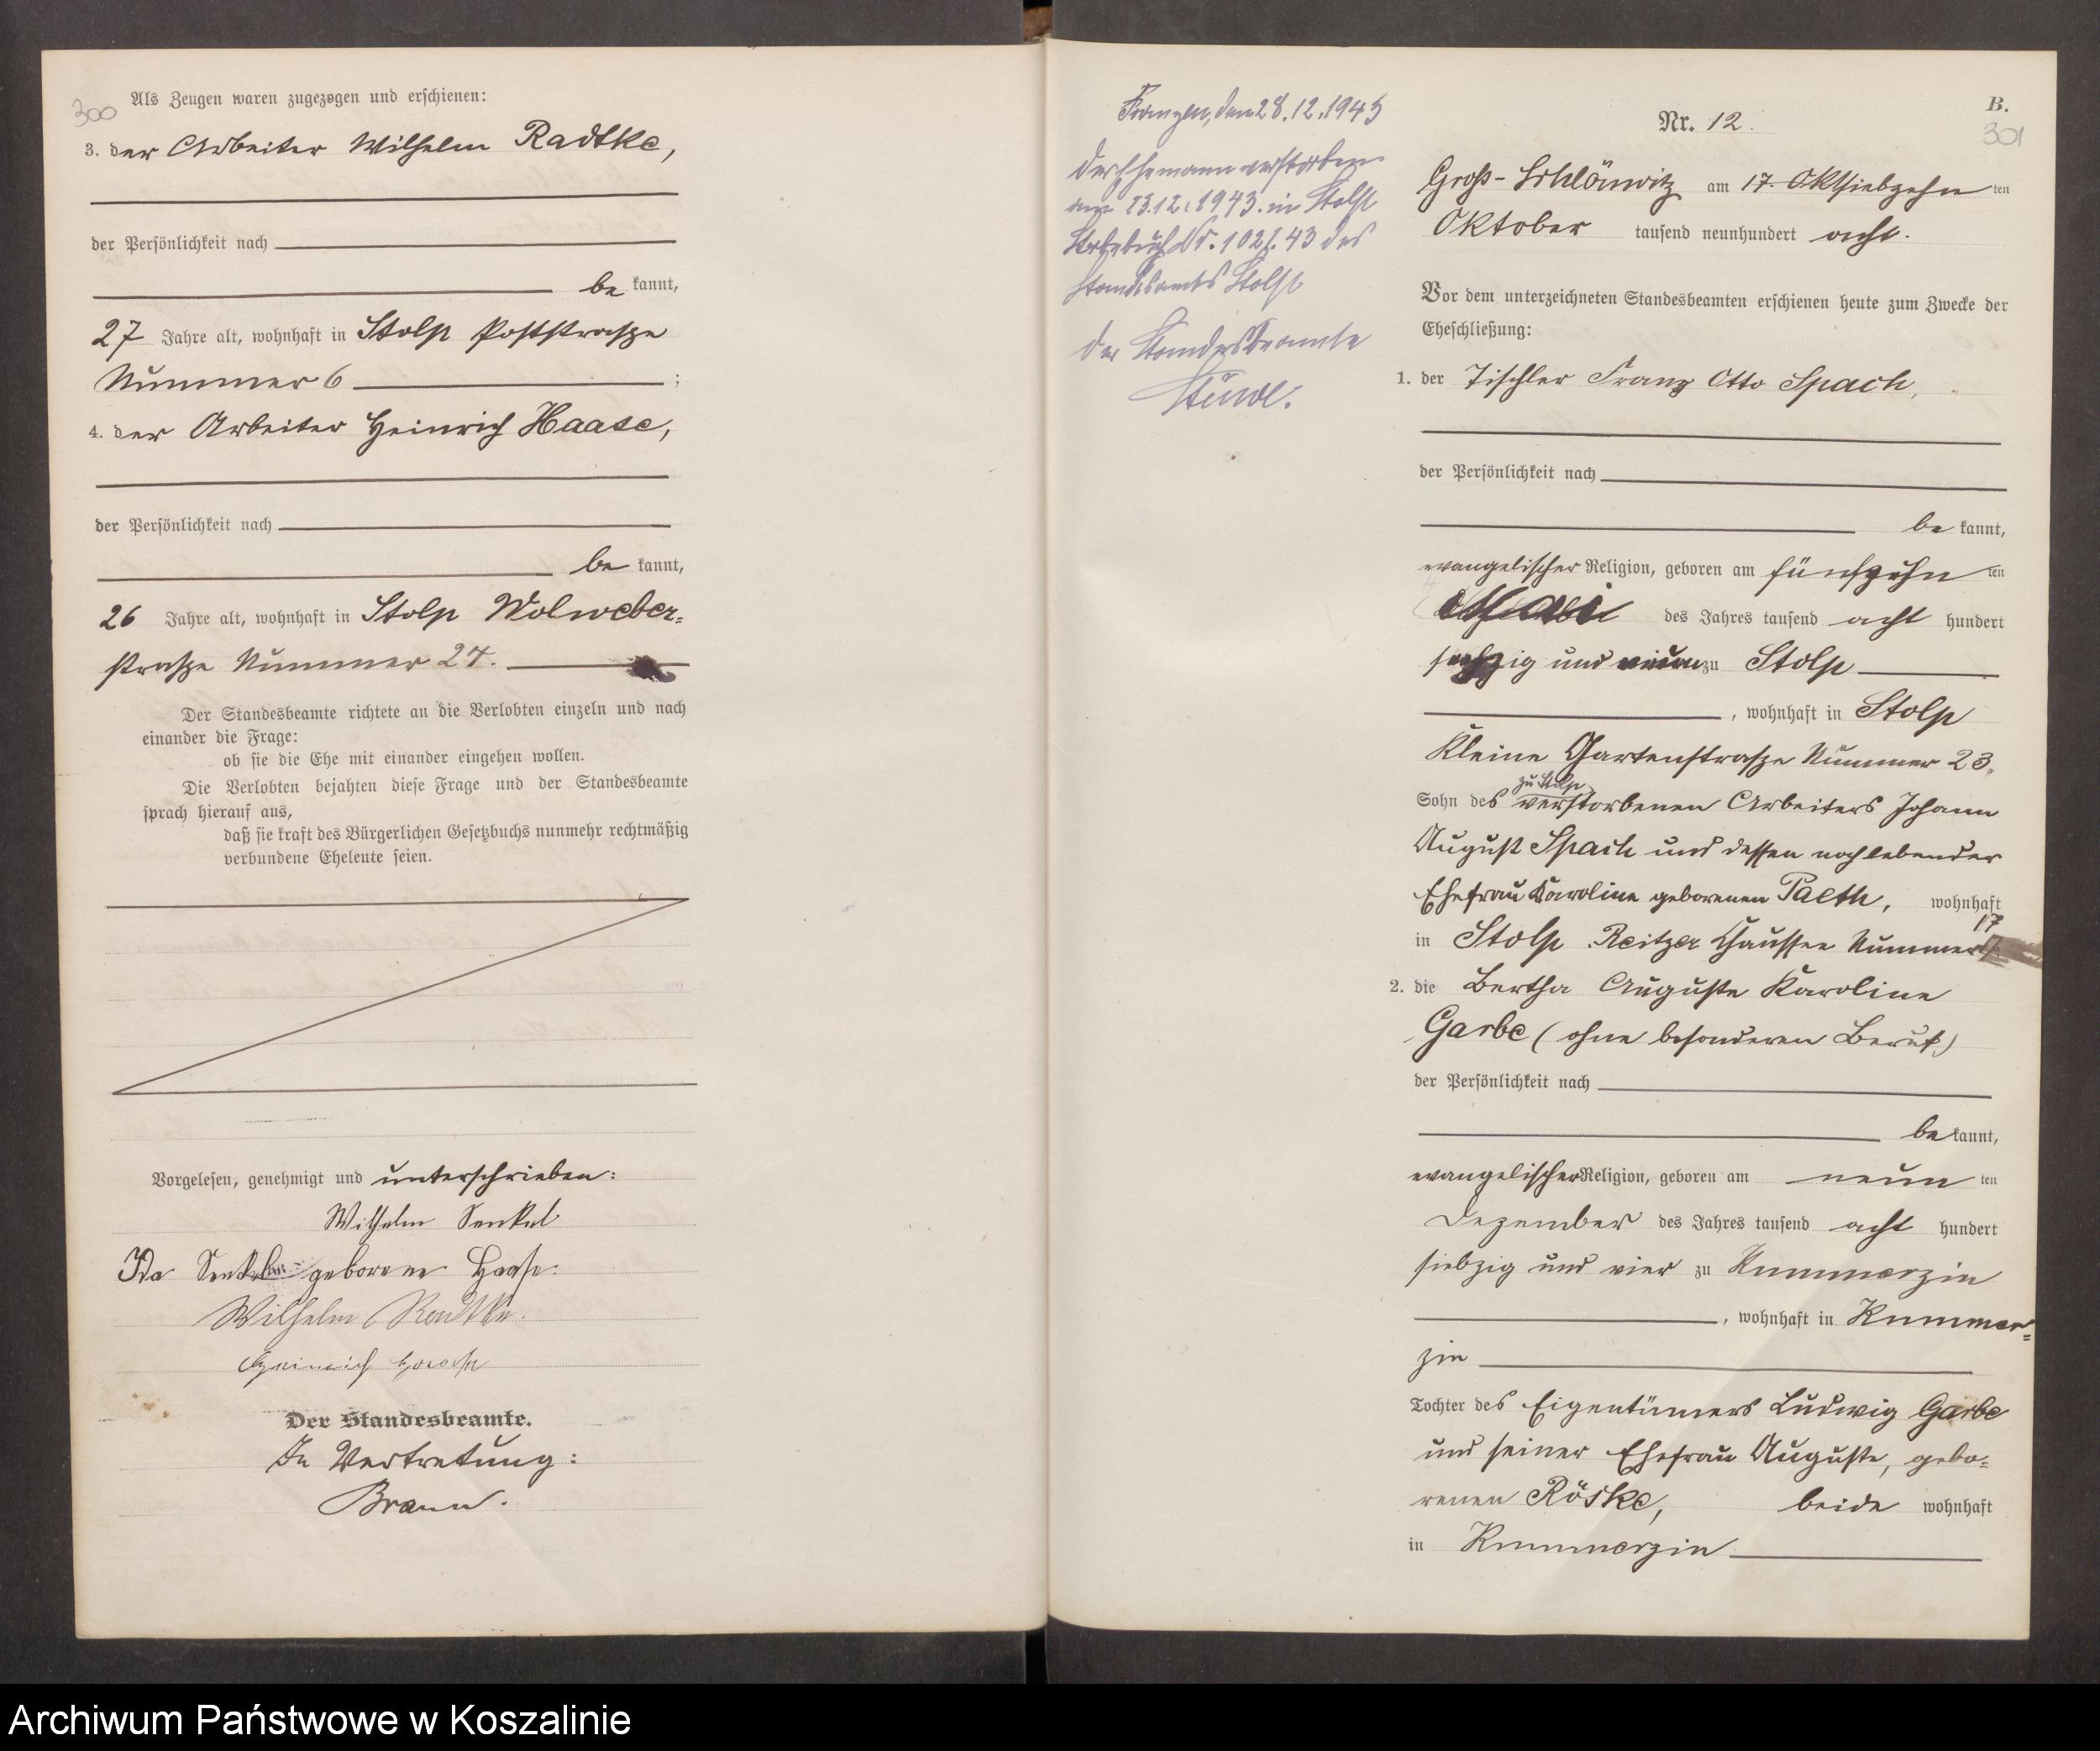 300
Als Zeugen waren zugezogen und erschienen:
3. der Arbeiter Wilhelm Radtke,
der Persönlichkeit nach
be kannt,
27 Jahre alt, wohnhaft in Stolp Poststrasze
Nummer 6 ;
4. der Arbeiter Heinrich Haase,
der Persönlichkeit nach
be kannt,
26 Jahre alt, wohnhaft in Stolp Wolweber-
strasze Nummer 24.
Der Standesbeamte richtete an die Verlobten einzeln und nach
einander die Frage:
ob sie die Ehe mit einander eingehen wollen.
Die Verlobten bejahten diese Frage und der Standesbeamte
sprach hierauf aus,
daß sie kraft des Bürgerlichen Gesetzbuchs nunmehr rechtmäßig
verbundene Eheleute seien.
Vorgelesen, genehmigt und unterschrieben:
Wilhelm Senkel
Ida geborene Haase.
Wilhelm Radtke.
Heinrich Haase
Der Standesbeamte.
In Vertretung:
Braun.
Franzen, den 28.12.1943
Der Ehemann verstorben
am 23.12.1943 in Stolp
Sterbebuch Nr. 43 des
Standesamts Stolp
Der Standesbeamte
B.
301
Nr. 12.
Groß-Schlönwitz am 17. Okt siebzehn ten
Oktober tausend neunhundert acht.
Vor dem unterzeichneten Standesbeamten erschienen heute zum Zwecke der
Eheschließung:
1. der Tischler Franz Otto Spach,
der Persönlichkeit nach
be kannt,
evangelischer Religion, geboren am fünfzehn ten
Mai des Jahres tausend acht hundert
sechzig und neun zu Stolp
, wohnhaft in Stolp
Kleine Gartenstrasze Nummer 23,
zu Stolp
Sohn des verstorbenen Arbeiters Johann
August Spach und dessen noch lebender
Ehefrau Karoline geborenen Paeth, wohnhaft
17
in Stolp Reitzer Chaussee Nummer
2. die Bertha Auguste Karoline
Garbe (ohne besonderen Beruf)
der Persönlichkeit nach
be kannt,
evangelischer Religion, geboren am neun ten
Dezember des Jahres tausend acht hundert
siebzig und vier zu Kummerzin
, wohnhaft in Kummer-
zin
Tochter des Eigentümers Ludwig Garbe
und seiner Ehefrau Auguste, gebo-
renen Röske, beide wohnhaft
in Kummerzin
Archiwum Państwowe w Koszalinie